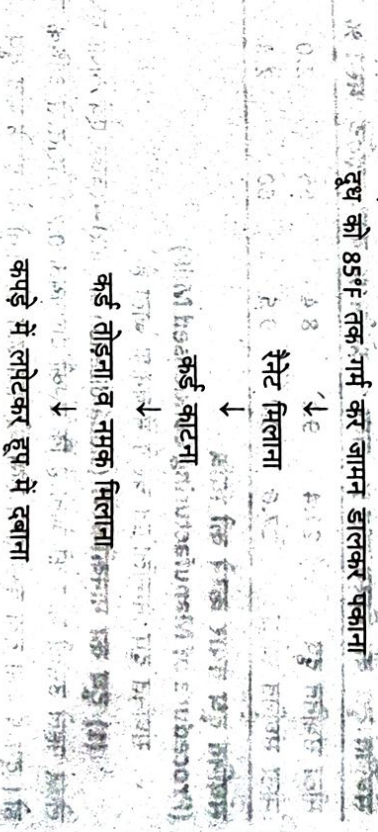 दूध को 85°F तक गर्म कर जामन डालकर पकाना
↓
रैनेट मिलाना
↓
कर्ड काटना
↓
कर्ड तोड़ना व नमक मिलाना
↓
कपड़े में लपेटकर हूप में दबाना